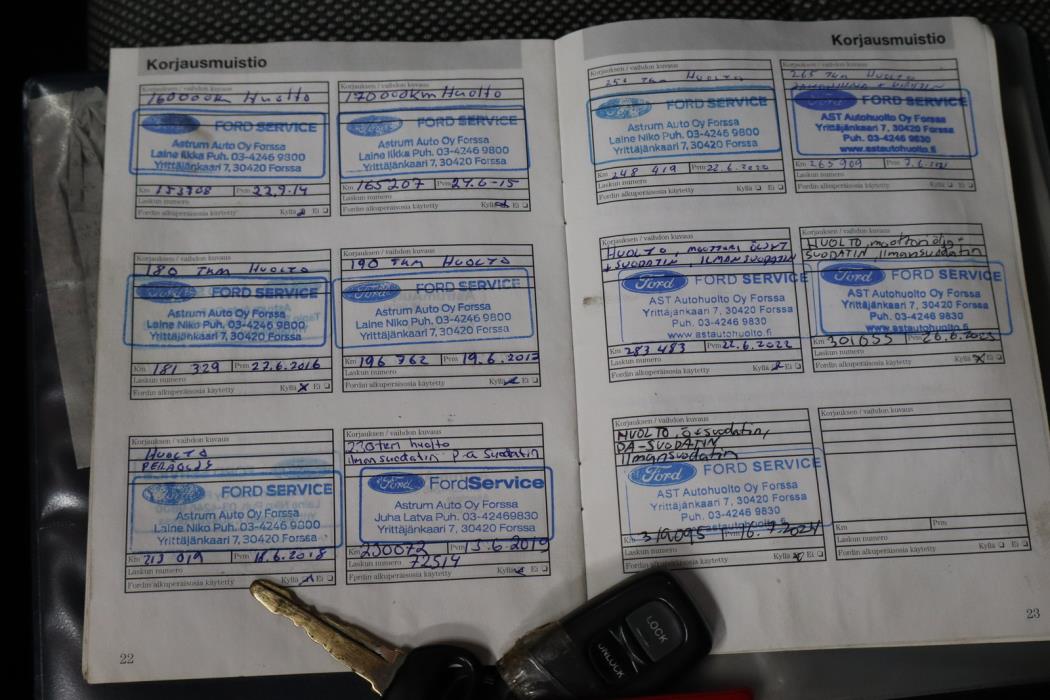 Korjausmuistio
Korjauksen / vaihdon kuvaus
160000km Huolto
Ford FORD SERVICE
Astrum Auto Oy Forssa
Laine Ilkka Puh. 03-4246 9800
Yrittäjänkaari 7, 30420 Forssa
Km 153708 Pvm 22.9.14
Laskun numero
Fordin alkuperäisosia käytetty Kyllä Ei
Korjauksen / vaihdon kuvaus
170000km Huolto
Ford FORD SERVICE
Astrum Auto Oy Forssa
Laine Ilkka Puh. 03-4246 9800
Yrittäjänkaari 7, 30420 Forssa
Km 165207 Pvm 24.6-15
Laskun numero
Fordin alkuperäisosia käytetty Kyllä Ei
Korjauksen / vaihdon kuvaus
180 TKM HUOLTO
Ford FORD SERVICE
Astrum Auto Oy Forssa
Laine Niko Puh. 03-4246 9800
Yrittäjänkaari 7, 30420 Forssa
Km 181 329 Pvm 27.6.2016
Laskun numero
Fordin alkuperäisosia käytetty Kyllä Ei
Korjauksen / vaihdon kuvaus
190 TKM HUOLTO
Ford FORD SERVICE
Astrum Auto Oy Forssa
Laine Niko Puh. 03-4246 9800
Yrittäjänkaari 7, 30420 Forssa
Km 196 762 Pvm
Laskun numero
Fordin alkuperäisosia käytetty Kyllä Ei
Korjauksen / vaihdon kuvaus
HUOLTO
Ford FORD SERVICE
Astrum Auto Oy Forssa
Laine Niko Puh. 03-4246 9800
Yrittäjänkaari 7, 30420 Forssa
Km 213 019 Pvm 18.6.2018
Laskun numero
Fordin alkuperäisosia käytetty Kyllä Ei
Korjauksen / vaihdon kuvaus
230tkm huolto
ilmansuodatin p-a suodatin
Ford FordService
Astrum Auto Oy Forssa
Juha Latva Puh. 03-42469830
Yrittäjänkaari 7, 30420 Forssa
Km 230072 Pvm 13.6.2019
Laskun numero 72514
Fordin alkuperäisosia käytetty Kyllä Ei
22
Korjausmuistio
Korjauksen / vaihdon kuvaus
250 TKM HUOLTO
Ford FORD SERVICE
Astrum Auto Oy Forssa
Laine Niko Puh. 03-4246 9800
Yrittäjänkaari 7, 30420 Forssa
Km 248 419 Pvm 22.6.2020
Laskun numero
Fordin alkuperäisosia käytetty Kyllä Ei
Korjauksen / vaihdon kuvaus
265 TKM HUOLTO
Ford FORD SERVICE
AST Autohuolto Oy Forssa
Yrittäjänkaari 7, 30420 Forssa
Puh. 03-4246 9830
www.astautohuolto.fi
Km 265 909 Pvm
Laskun numero
Fordin alkuperäisosia käytetty Kyllä Ei
Korjauksen / vaihdon kuvaus
HUOLTO MOOTTORI ÖLJYT
+ SUODATIN, ILMANSUODATIN
Ford FORD SERVICE
AST Autohuolto Oy Forssa
Yrittäjänkaari 7, 30420 Forssa
Puh. 03-4246 9830
www.astautohuolto.fi
Km 283 483 Pvm 22.6.2022
Laskun numero
Fordin alkuperäisosia käytetty Kyllä Ei
Korjauksen / vaihdon kuvaus
HUOLTO, moottoriöljy-
SUODATIN, ilmansuodatin
Ford FORD SERVICE
AST Autohuolto Oy Forssa
Yrittäjänkaari 7, 30420 Forssa
Puh. 03-4246 9830
www.astautohuolto.fi
Km 301055 Pvm 26.6.2023
Laskun numero
Fordin alkuperäisosia käytetty Kyllä Ei
Korjauksen / vaihdon kuvaus
HUOLTO, ö+suodatin,
PA-SUODATIN
ilmansuodatin
Ford FORD SERVICE
AST Autohuolto Oy Forssa
Yrittäjänkaari 7, 30420 Forssa
Puh. 03-4246 9830
www.astautohuolto.fi
Km 319095 Pvm 16.7.2024
Laskun numero
Fordin alkuperäisosia käytetty Kyllä Ei
Korjauksen / vaihdon kuvaus
Km Pvm
Laskun numero
Fordin alkuperäisosia käytetty Kyllä Ei
23
LOCK
UNLOCK